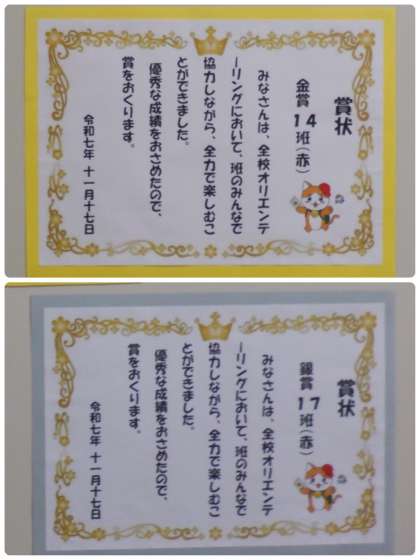 賞状
金賞 14班(赤)
みなさんは、全校オリエンテ
ーリングにおいて、班のみんなで
協力しながら、全力で楽しむこ
とができました。
優秀な成績をおさめたので、
賞をおくります。
令和七年 十一月十七日
賞状
銀賞 17班(赤)
みなさんは、全校オリエンテ
ーリングにおいて、班のみんなで
協力しながら、全力で楽しむこ
とができました。
優秀な成績をおさめたので、
賞をおくります。
令和七年 十一月十七日